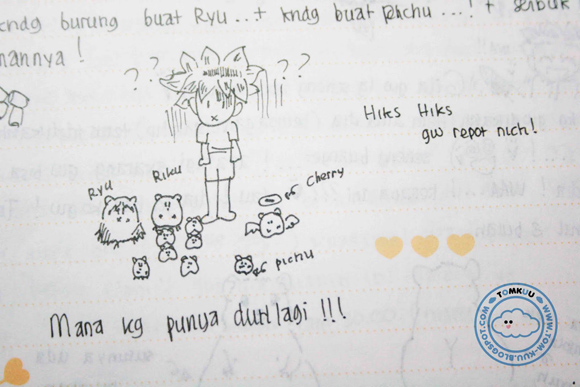 kndg burung buat Ryu .. + kndg buat pichu ... ! + seibuk
nannya !
? ? ? ?
Hiks Hiks
gw repot nich !
Ryu
Riku
Cherry
pichu
Mana kg punya duit lagi !!!
TOMKUU
WWW.TOM-KUU.BLOGSPOT.COM